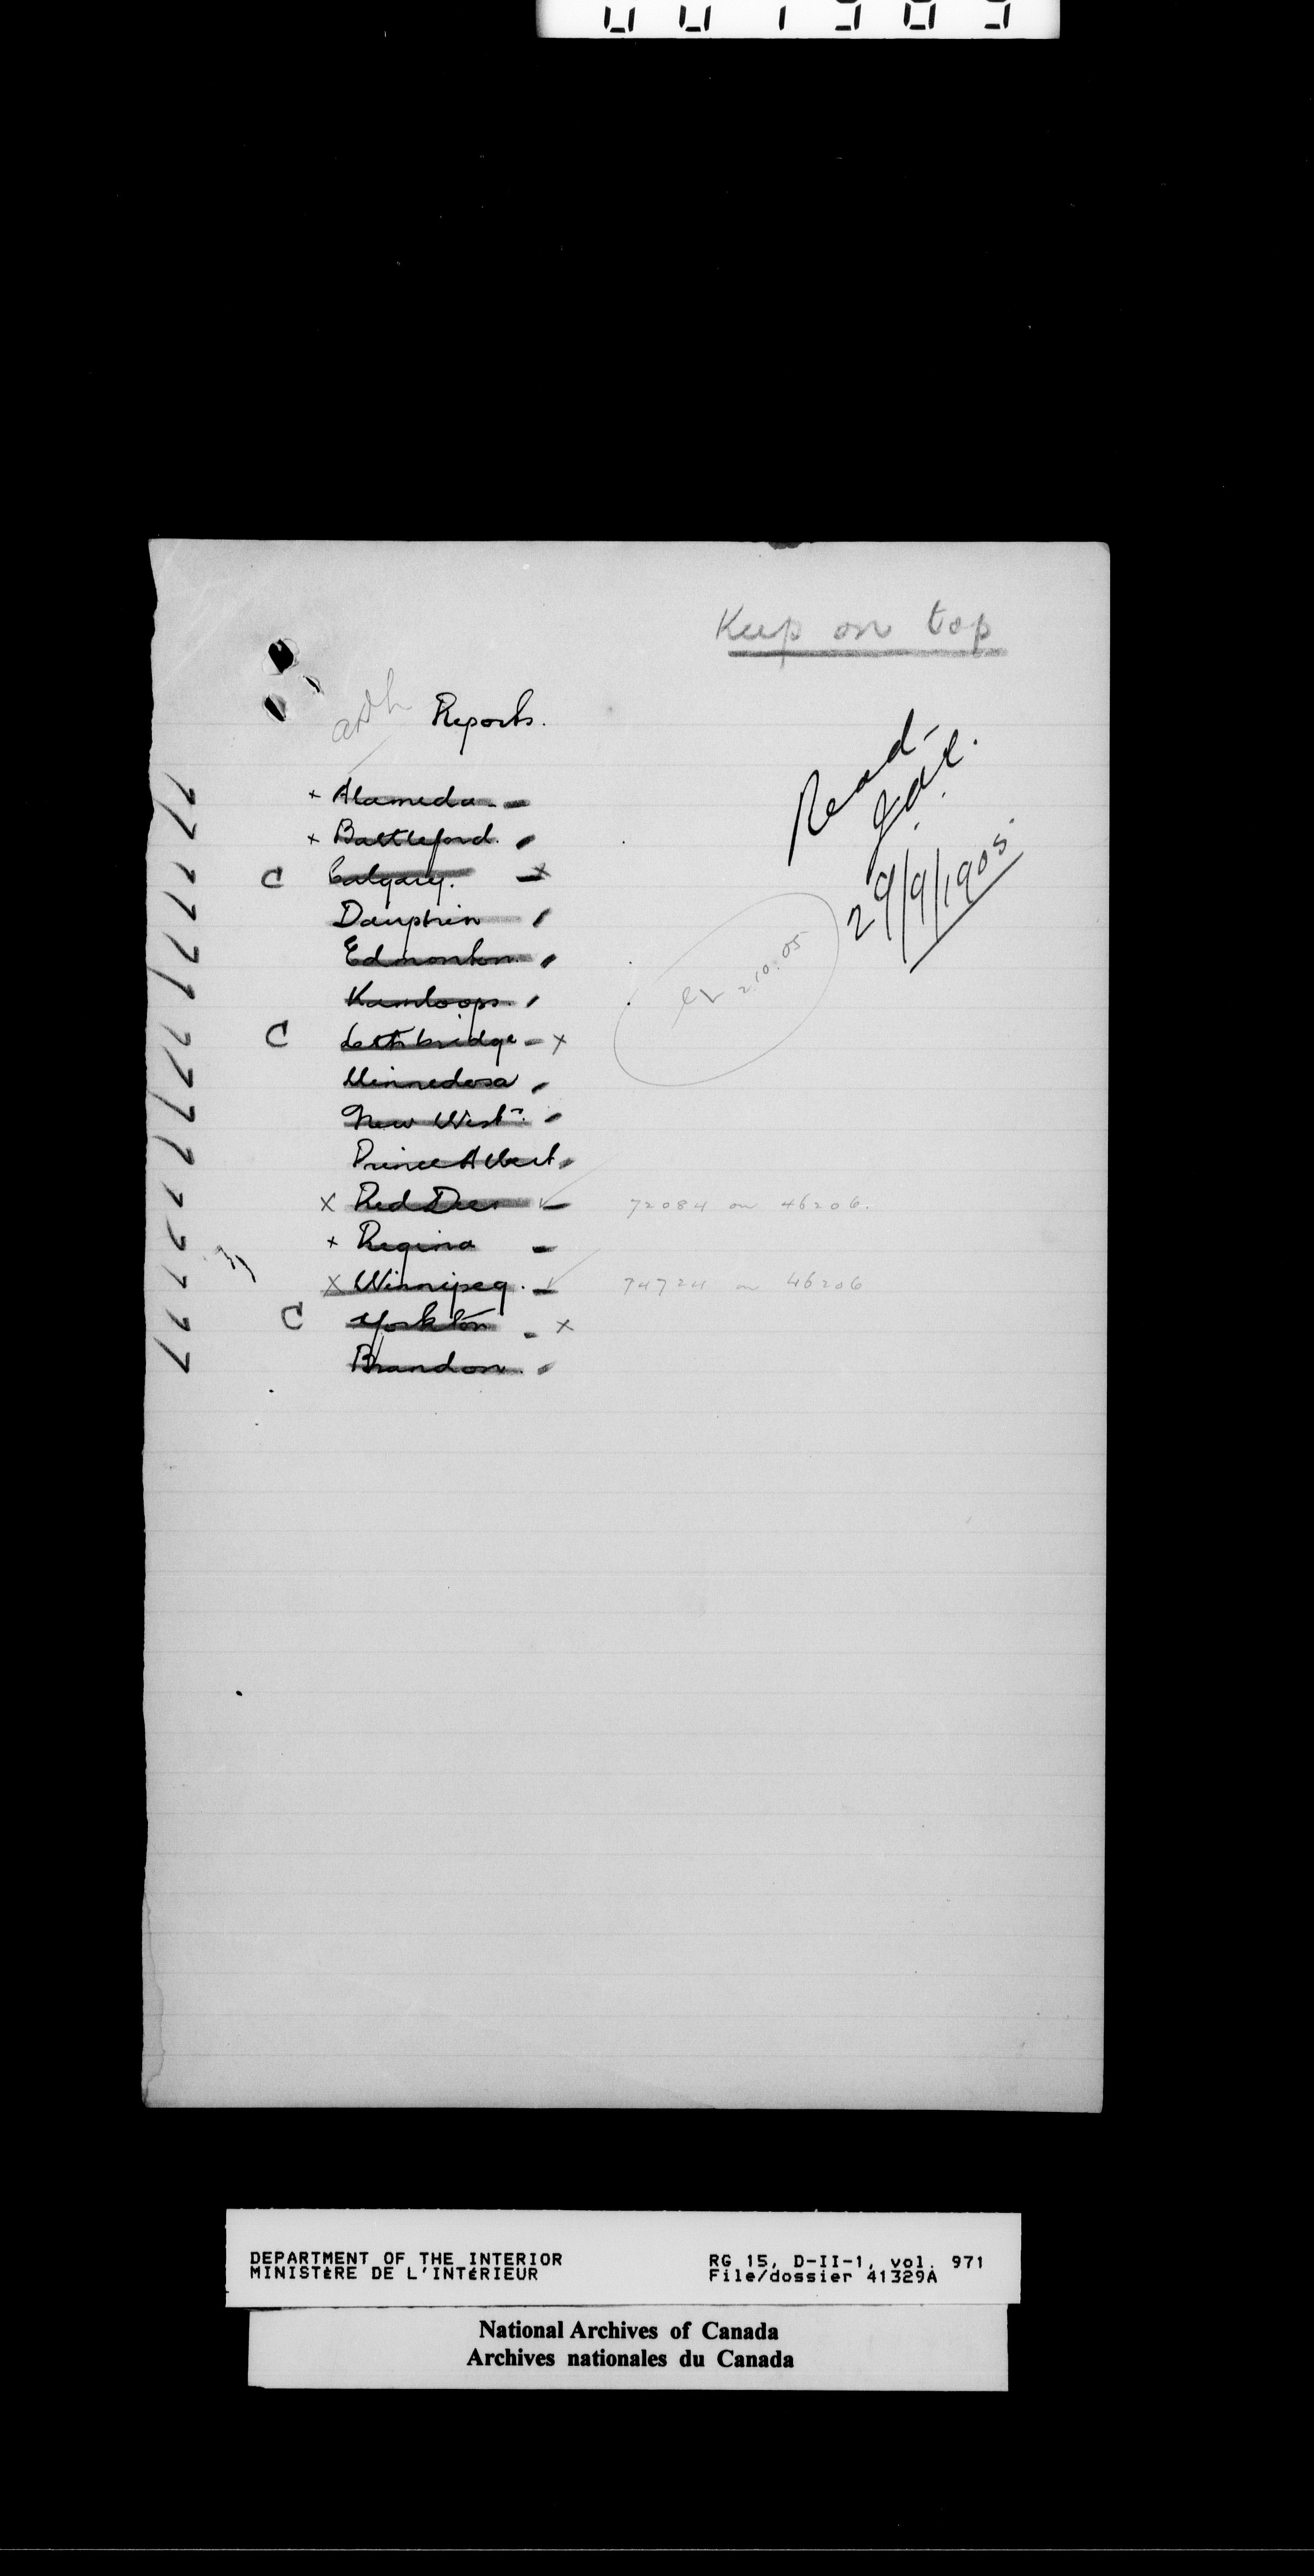 Keep on top
Reports.
Read
29/9/1905.
x Alameda
x Battleford.
C Calgary. x
Dauphin
Edmonton
2.10.05
Kamloops.
C Lethbridge x
Minnedosa
New West
Prince Albert
x Red Deer 72084 on 46206.
x Regina
x Winnipeg. 74724 on 46206
C Yorkton x
Brandon
DEPARTMENT OF THE INTERIOR
MINISTÈRE DE L'INTÉRIEUR
RG 15, D-II-1, vol. 971
File/dossier 41329A
National Archives of Canada
Archives nationales du Canada